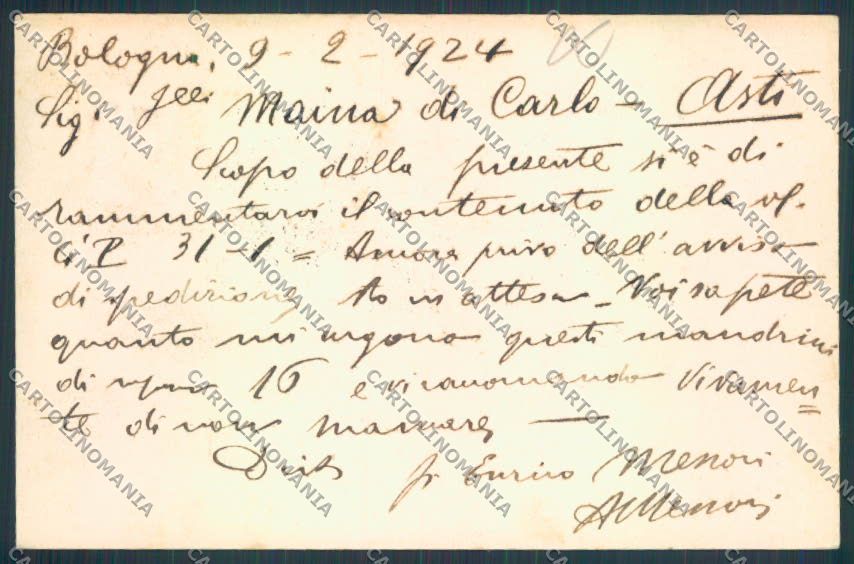 Bologna, 9 - 2 - 1924
Sigi Flli Maina di Carlo - Asti
Scopo della presente si è di
rammentarvi il contenuto della
31-1 = Ancora privo dell'avviso
di spedizione, sto in attesa - Voi sapete
quanto mi urgono questi mandrini
di 16 e vi raccomando vivamen=
te di non mancare —
Ditta Enrico Messori
AMessori
CARTOLINOMANIA